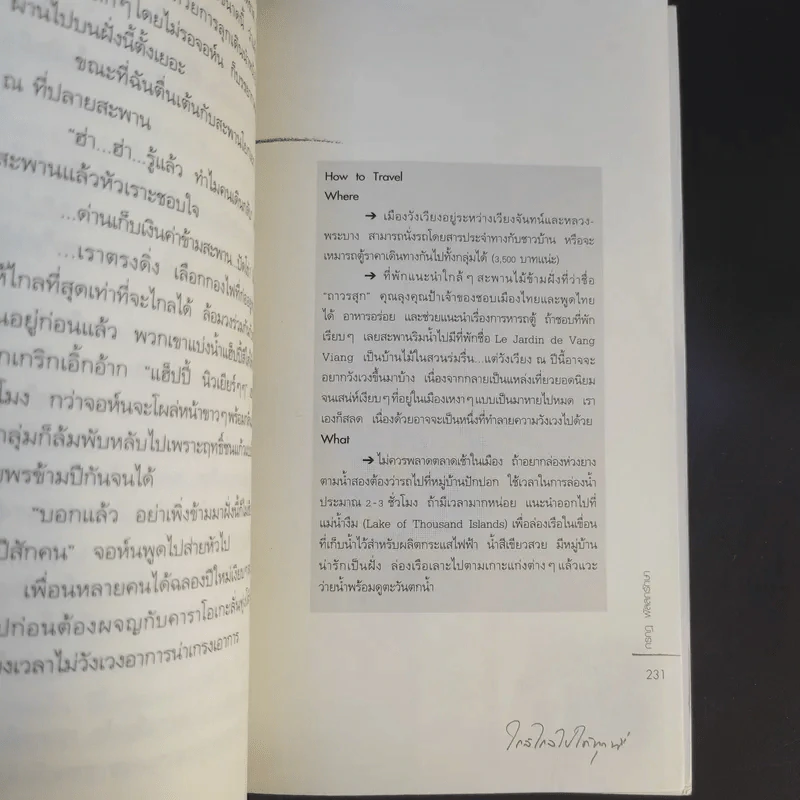 ผ่านไปบนฝั่งนี้ตั้งเยอะ
ขณะที่ฉันตื่นเต้นกับสะพาน
ณ ที่ปลายสะพาน
"ฮ่า...ฮ่า...รู้แล้ว ทำไมคนเดิน
สะพานแล้วหัวเราะชอบใจ
...ด่านเก็บเงินค่าข้ามสะพาน
...เราตรงดิ่ง เลือกกองไฟที่
ให้ไกลที่สุดเท่าที่จะไกลได้ ล้อมวงร่วม
อยู่ก่อนแล้ว พวกเขาแบ่งน้ำแข็ง
เกริกเอิ๊กอ๊าก "แฮ็ปปี้ นิวเยียร์ๆๆ"
โมง กว่าจอห์นจะโผล่หน้าขาวๆพร้อม
กลุ่มก็ล้มพับหลับไปเพราะฤทธิ์ชนแก้ว
พรข้ามปีกันจนได้
"บอกแล้ว อย่าเพิ่งข้ามมาฝั่งนี้
ปีสักคน" จอห์นพูดไปส่ายหัวไป
เพื่อนหลายคนได้ฉลองปีใหม่
ก่อนต้องผจญกับคาราโอเกะลั่น
เวลาไม่วังเวงอาการน่าเกรงอาการ
How to Travel
Where
➔ เมืองวังเวียงอยู่ระหว่างเวียงจันทน์และหลวง-
พระบาง สามารถนั่งรถโดยสารประจำทางกับชาวบ้าน หรือจะ
เหมารถตู้ราคาเดินทางกันไปทั้งกลุ่มได้ (3,500 บาทแน่ะ)
➔ ที่พักแนะนำใกล้ๆสะพานไม้ข้ามฝั่งที่ว่าชื่อ
"ถาวรสุก" คุณลุงคุณป้าเจ้าของชอบเมืองไทยและพูดไทย
ได้ อาหารอร่อย และช่วยแนะนำเรื่องการหารถตู้ ถ้าชอบที่พัก
เรียบๆ เลยสะพานริมน้ำไปมีที่พักชื่อ Le Jardin de Vang
Viang เป็นบ้านไม้ในสวนร่มรื่น...แต่วังเวียง ณ ปีนี้อาจจะ
อยากวังเวงขึ้นมาบ้าง เนื่องจากกลายเป็นแหล่งเที่ยวยอดนิยม
จนเสน่ห์เงียบๆที่อยู่ในเมืองเหงาๆแบบเป็นมาหายไปหมด เรา
เองก็สลด เนื่องด้วยอาจจะเป็นหนึ่งที่ทำลายความวังเวงไปด้วย
What
➔ ไม่ควรพลาดตลาดเช้าในเมือง ถ้าอยากล่องห่วงยาง
ตามน้ำสองต้องว่ารถไปที่หมู่บ้านปักปอก ใช้เวลาในการล่องน้ำ
ประมาณ 2-3 ชั่วโมง ถ้ามีเวลามากหน่อย แนะนำออกไปที่
แม่น้ำงึม (Lake of Thousand Islands) เพื่อล่องเรือในเขื่อน
ที่เก็บน้ำไว้สำหรับผลิตกระแสไฟฟ้า น้ำสีเขียวสวย มีหมู่บ้าน
น่ารักเป็นฝั่ง ล่องเรือเลาะไปตามเกาะแก่งต่างๆแล้วแวะ
ว่ายน้ำพร้อมดูตะวันตกน้ำ
231